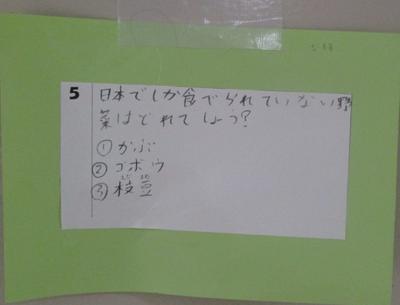 5 日本でしか食べられていない野
菜はどれでしょう?
① かぶ
② ゴボウ
③ 枝豆